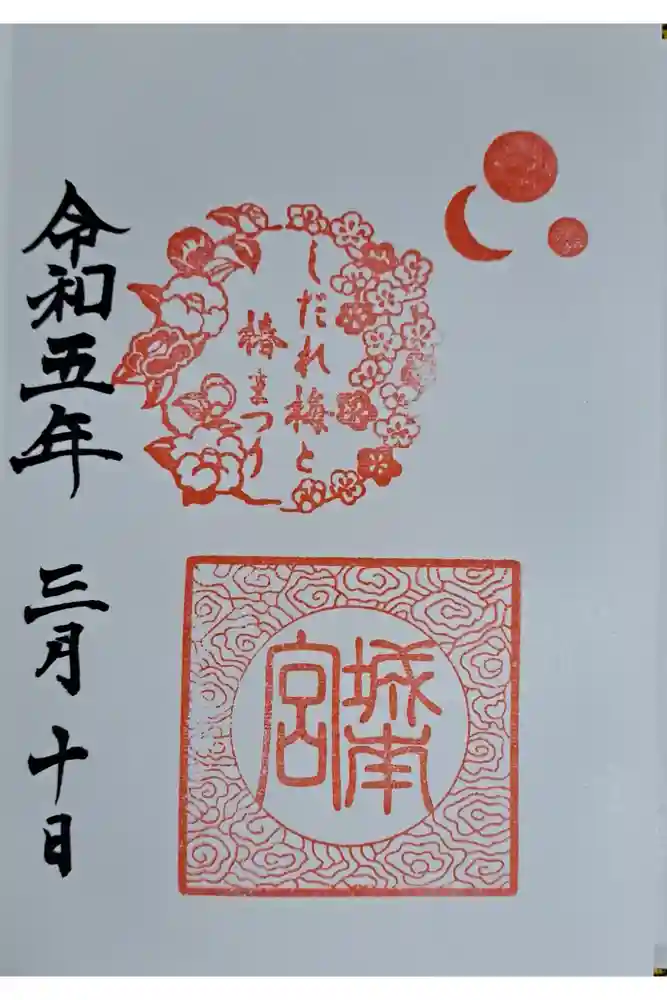 しだれ梅と
椿まつり
城南
宮
令和五年 三月 十日